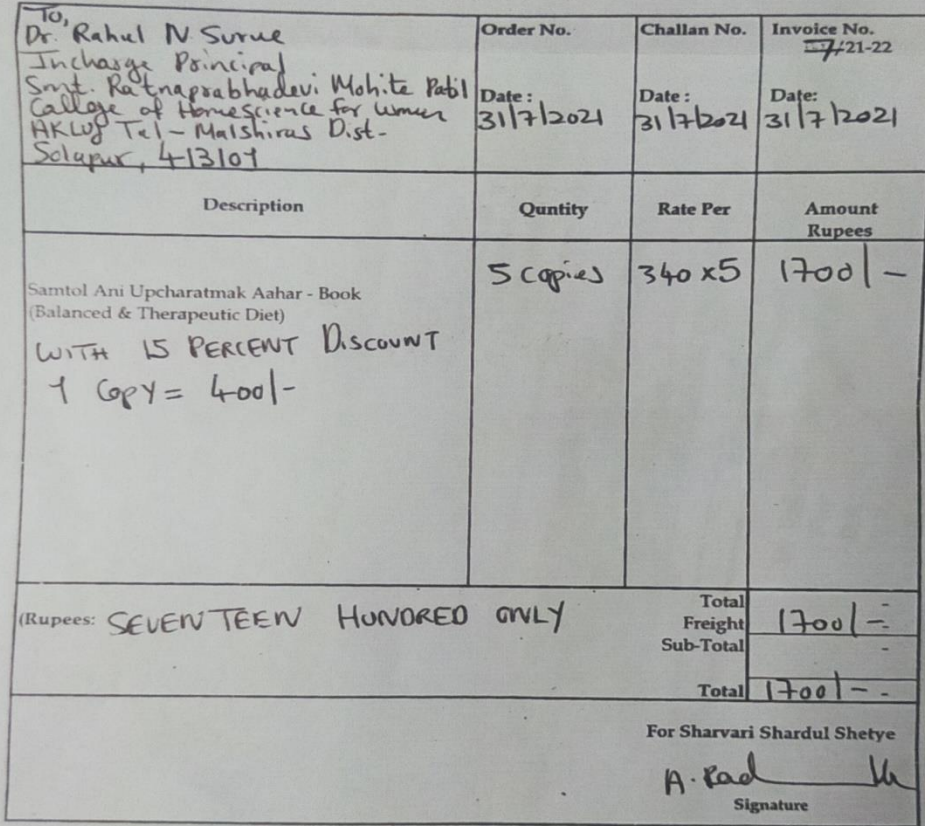 To,
Dr. Rahul N Surve
Incharge Principal
Smt. Ratnaprabhadevi Mohite Patil
College of Homescience for women
AKLUJ Tal - Malshiras Dist-
Solapur, 413101
Order No.
Date :
31/7/2021
Challan No.
Date :
31/7/2021
Invoice No.
/21-22
Date:
31/7/2021
Description
Quntity
Rate Per
Amount
Rupees
Samtol Ani Upcharatmak Aahar - Book
(Balanced & Therapeutic Diet)
5 copies
340 x5
1700/-
WITH 15 PERCENT DISCOUNT
1 COPY = 400/-
(Rupees: SEVENTEEN HUNDRED ONLY
Total
Freight
1700/-
-
Sub-Total
-
Total
1700/- -
For Sharvari Shardul Shetye
Signature